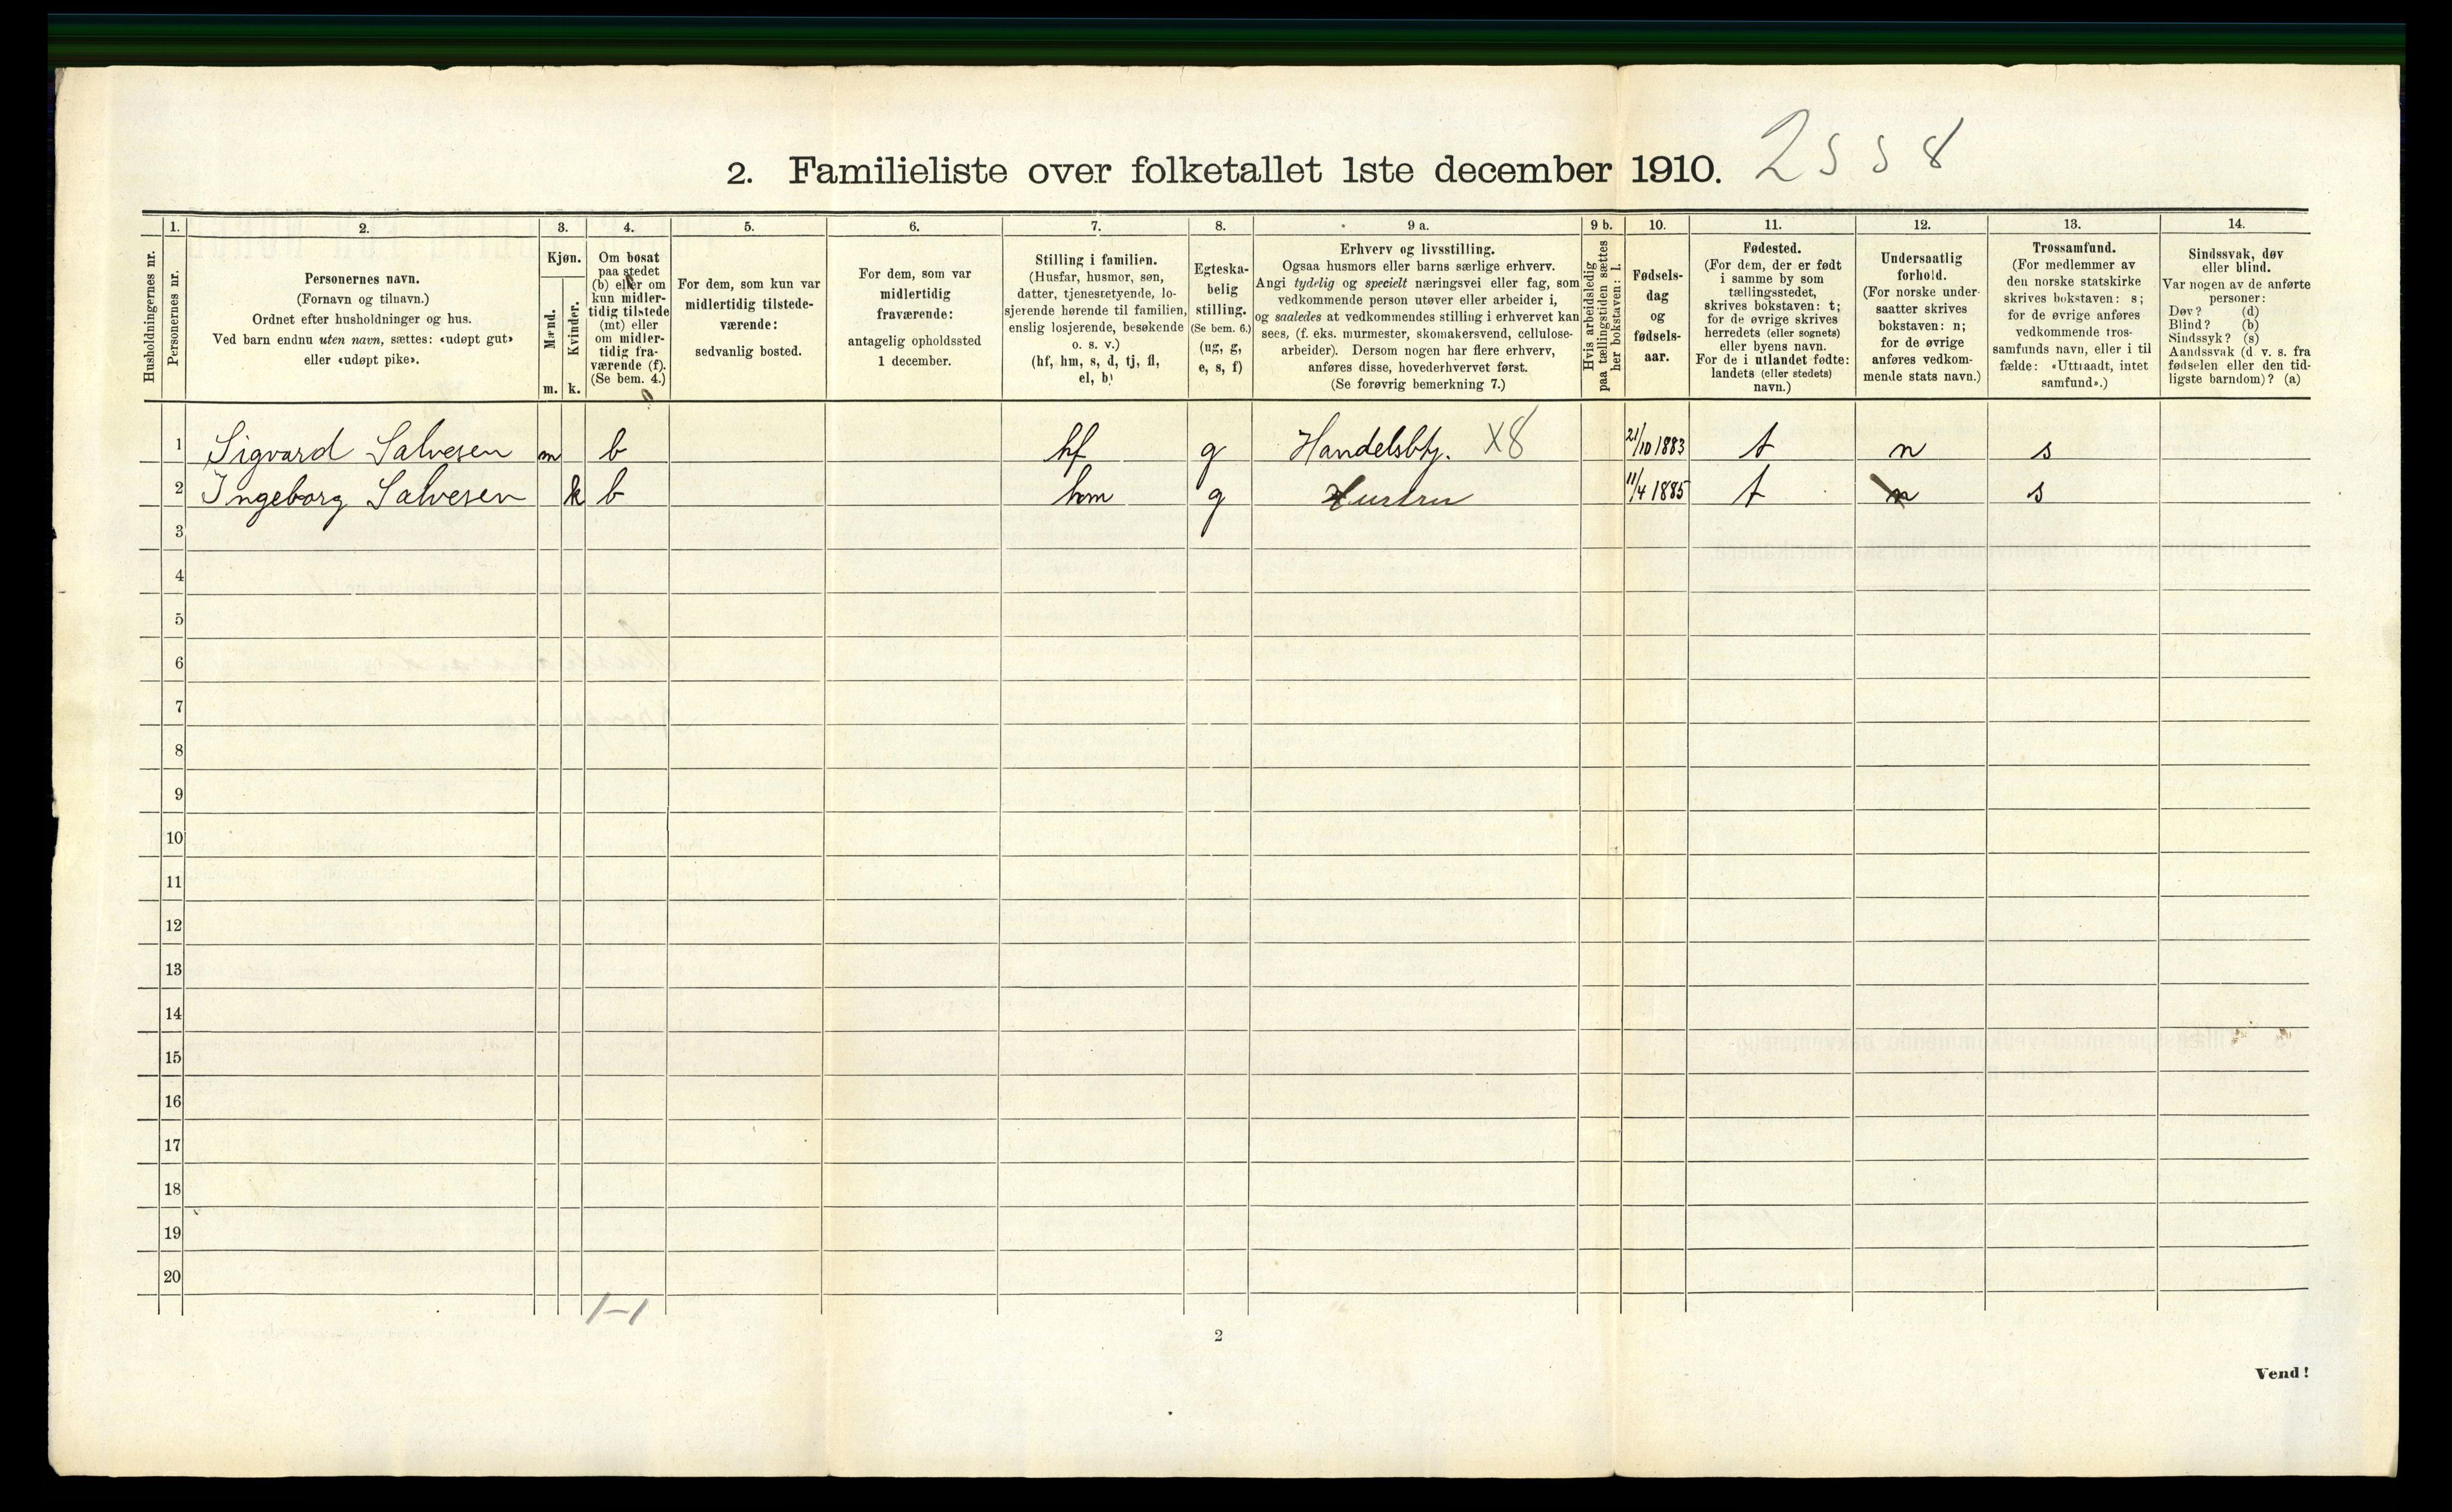 2. Familieliste over folketallet 1ste december 1910. 2558
1. 2. 3. 4. 5. 6. 7. 8. 9 a. 9 b. 10. 11. 12. 13. 14.
Husholdningernes nr.
Personernes nr.
Personernes navn.
(Fornavn og tilnavn.)
Ordnet efter husholdninger og hus.
Ved barn endnu uten navn, sættes: «udøpt gut»
eller «udøpt pike».
Kjøn.
Mænd.
Kvinder.
m. k.
Om bosat
paa stedet
(b) eller om
kun midler-
tidig tilstede
(mt) eller
om midler-
tidig fra-
værende (f).
(Se bem. 4.)
For dem, som kun var
midlertidig tilstede-
værende:
sedvanlig bosted.
For dem, som var
midlertidig
fraværende:
antagelig opholdssted
1 december.
Stilling i familien.
(Husfar, husmor, søn,
datter, tjenestetyende, lo-
sjerende hørende til familien,
enslig losjerende, besøkende
o. s. v.)
(hf, hm, s, d, tj, fl,
el, b)
Egteska-
belig
stilling.
(Se bem. 6.)
(ug, g,
e, s, f)
Erhverv og livsstilling.
Ogsaa husmors eller barns særlige erhverv.
Angi tydelig og specielt næringsvei eller fag, som
vedkommende person utøver eller arbeider i,
og saaledes at vedkommendes stilling i erhvervet kan
sees, (f. eks. murmester, skomakersvend, cellulose-
arbeider). Dersom nogen har flere erhverv,
anføres disse, hovederhvervet først.
(Se forøvrig bemerkning 7.)
Hvis arbeidsledig
paa tællingstiden sættes
her bokstaven: l.
Fødsels-
dag
og
fødsels-
aar.
Fødested.
(For dem, der er født
i samme by som
tællingsstedet,
skrives bokstaven: t;
for de øvrige skrives
herredets (eller sognets)
eller byens navn.
For de i utlandet fødte:
landets (eller stedets)
navn.)
Undersaatlig
forhold.
(For norske under-
saatter skrives
bokstaven: n;
for de øvrige
anføres vedkom-
mende stats navn.)
Trossamfund.
(For medlemmer av
den norske statskirke
skrives bokstaven: s;
for de øvrige anføres
vedkommende tros-
samfunds navn, eller i til
fælde: «Uttraadt, intet
samfund».)
Sindssvak, døv
eller blind.
Var nogen av de anførte
personer:
Døv? (d)
Blind? (b)
Sindssyk? (s)
Aandssvak (d v. s. fra
fødselen eller den tid-
ligste barndom)? (a)
1 Sigvard Salvesen m b hf g Handelsbtj. X8 21/10 1883 t n s
2 Ingeborg Salvesen k b hm g Hustru 11/4 1885 t n s
3
4
5
6
7
8
9
10
11
12
13
14
15
16
17
18
19
20
1-1
2
Vend!